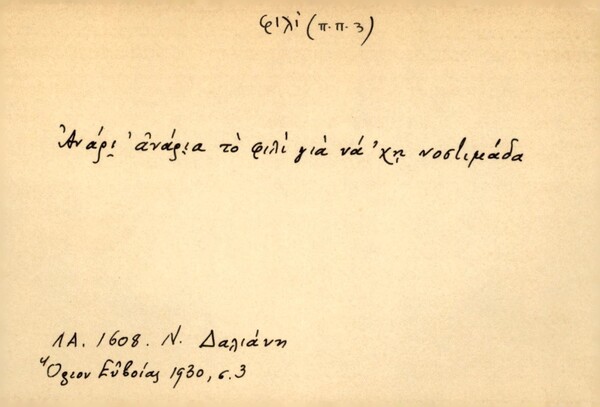 φιλὶ (π.π.3)
Ἀνάρι̣ ἀνάρι̣α τὸ φιλὶ γιὰ νά 'χῃ νοστιμάδα
ΛΑ. 1608. Ν. Δαλιάνη
Ὄριον Εὐβοίας 1930, σ.3